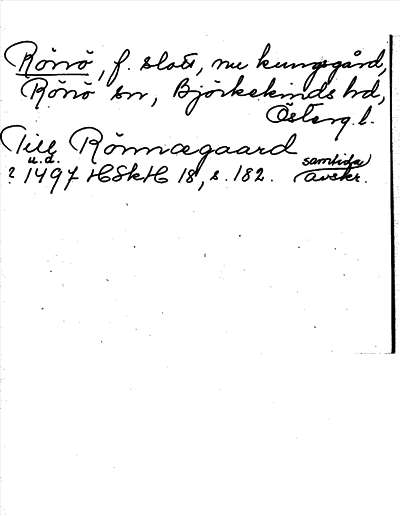 Rönö, f. slott, nu kungsgård,
Rönö sn, Björkekinds hd,
Österg. l.
Till Rönnægaard
? 1497 u.d. HSkH 18, s. 182. samtida avskr.